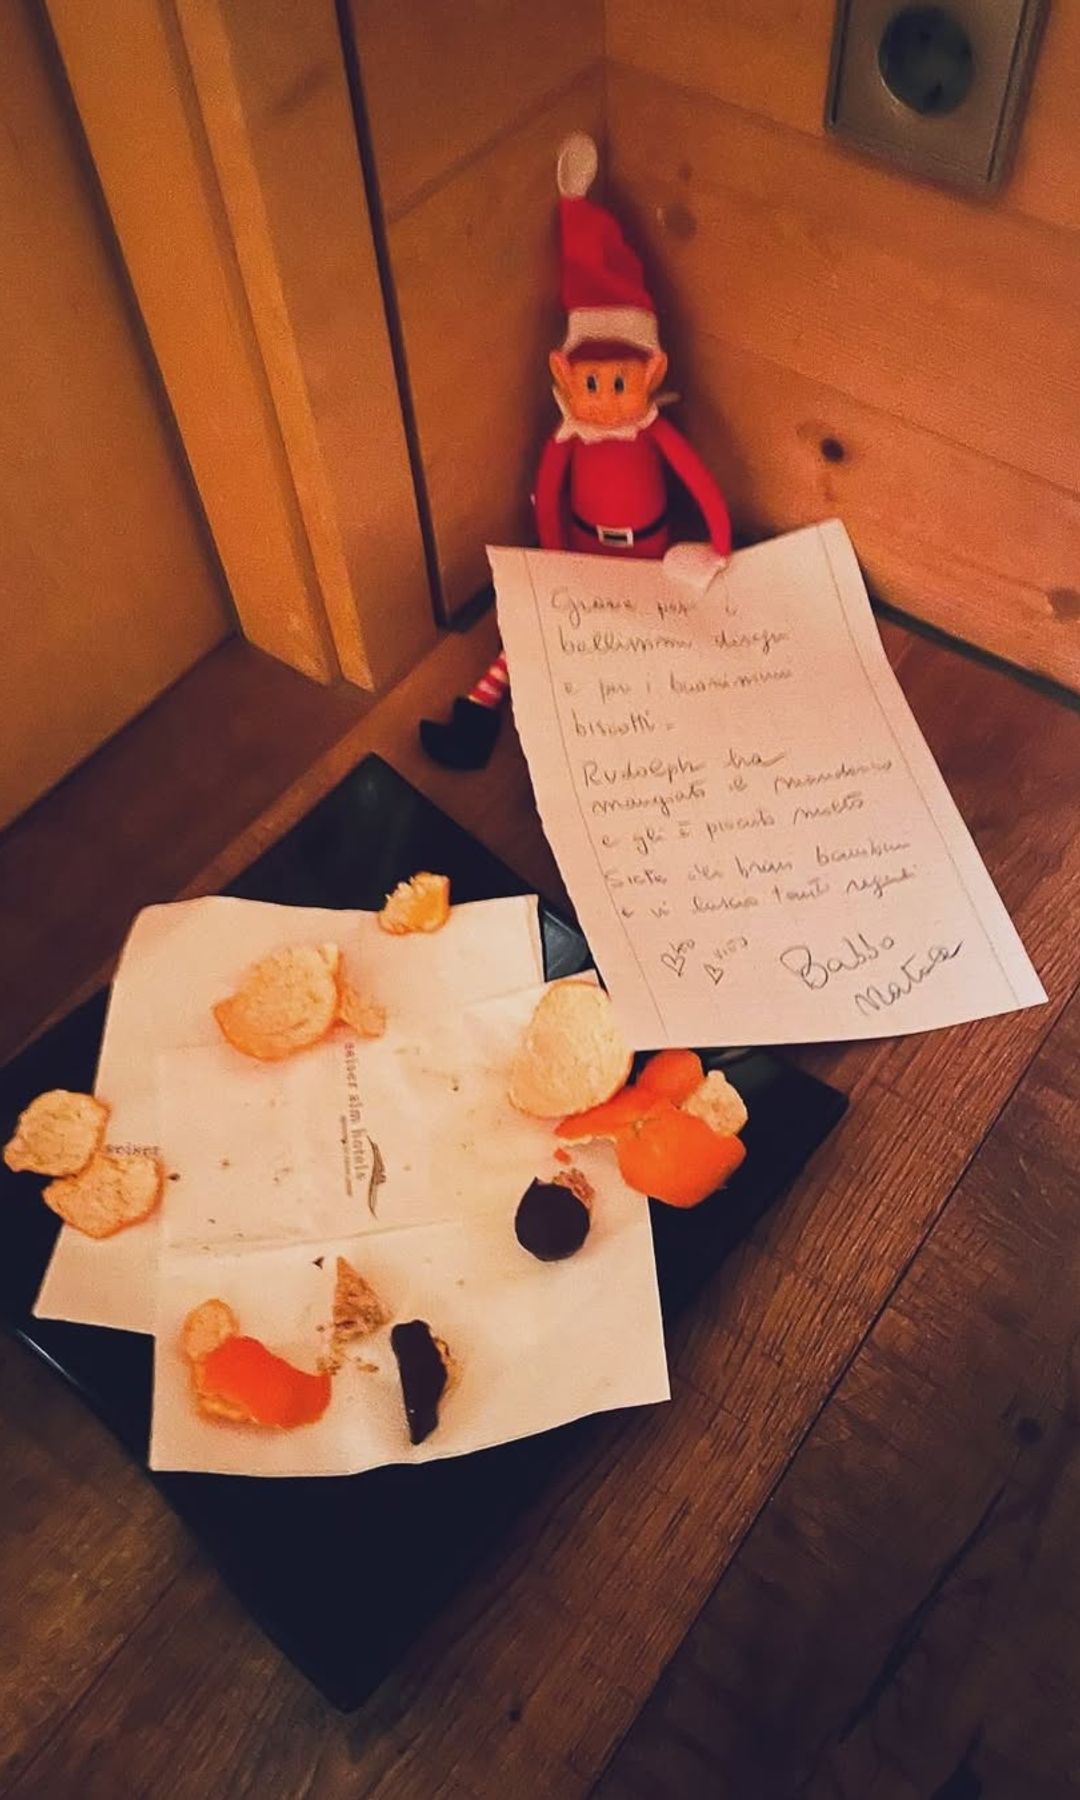 Grazie per i
bellissimi disegni
e per i buonissimi
biscotti.
Rudolph ha
mangiato il mandarino
e gli è piaciuto molto
Siete dei bravi bambini
e vi lascio tanti regali
Babbo
Natale
seiser alm hotels
seiser